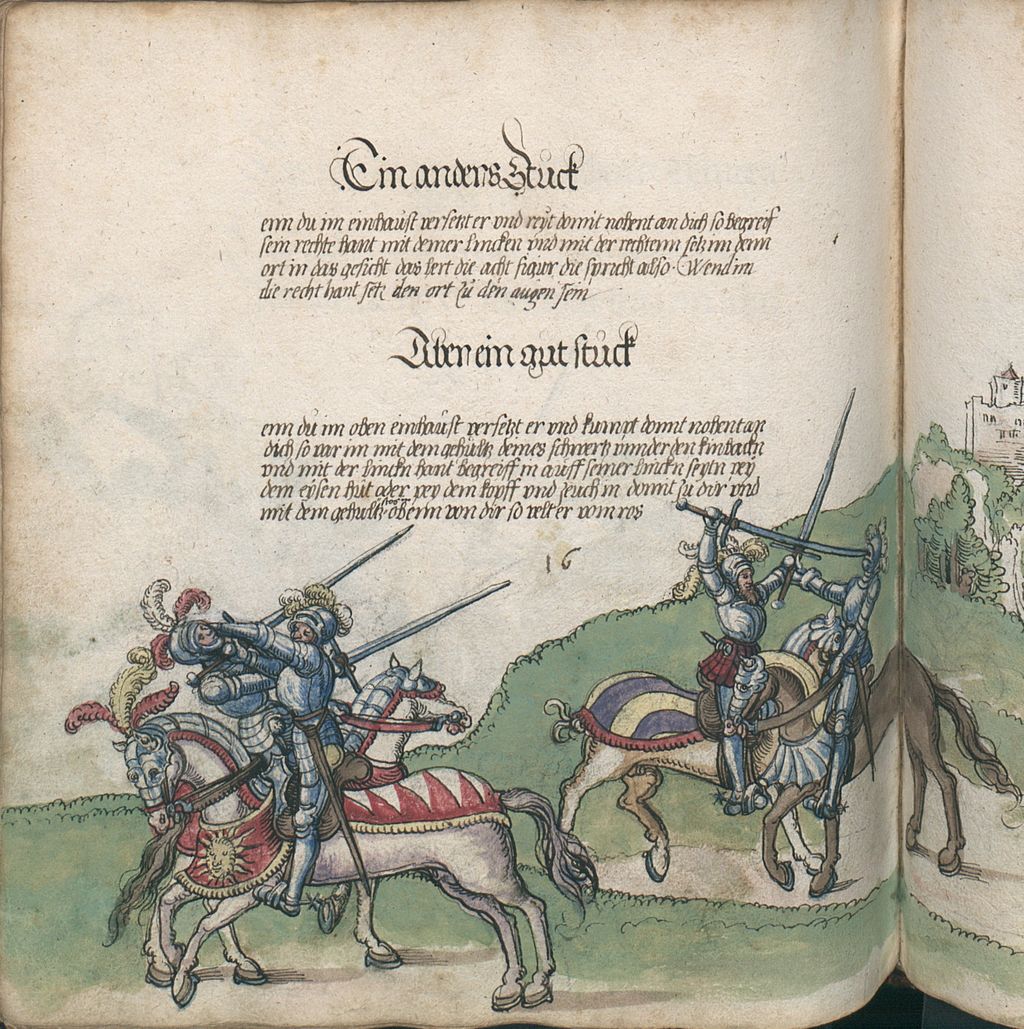 Ein anders Stuck
enn du im einhaust versetzt er vnd reyt domit nohent an dich so begreif
sein rechte hant mit deiner lincken vnd mit der rechtenn setz im denn
ort in das gesicht das lert die acht figur die spricht also · Wend im
die recht hant setz den ort zu den augen sein
Aber ein gut stuck
enn du im oben einhaust versetzt er vnd kumpt domit nohent an
dich so var im mit dem gehultz deines schwertz vnnder den kinbacken
vnd mit der linckn hant begreiff in auff seiner linckn seytn pey
dem eysen hut oder pey dem kopff vnd zeuch in domit zu dir vnd
mit dem gehultz stos obenn von dir so velt er vom ros
16